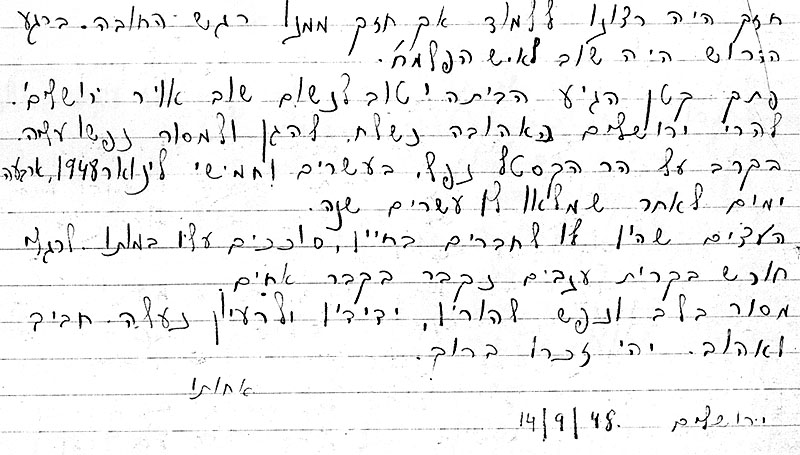 חזק היה רצונו ללמוד אך חזק ממנו רגש החובה. ברגע
הדרוש היה שוב לאיש הפלמח.
פתק קטן הגיע הביתה "טוב לנשום שוב אויר ירושלים".
להרי ירושלים האהובה נשלח. להגן ולמסור נפשו עליה.
בקרב על הר הקסטל נפל, בעשרים וחמישי לינואר 1948, ארבעה
ימים לאחר שמלאו לו עשרים שנה.
העצים שהיו לו לחברים בחייו, סוככים עליו במותו. לרגלי
חורש בקרית ענבים נקבר בקבר אחים.
מסור בלב ונפש להוריו, ידידיו ולרעיון נעלה. חביב
ואהוב. יהי זכרו ברוך.
אחותו
ירושלים 14/9/48.